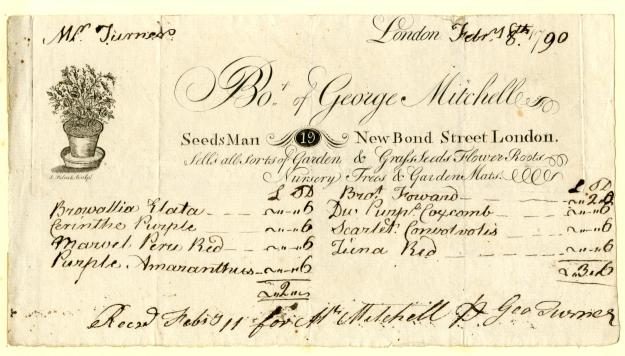 Mr. Turner
London Febry. 8th. 1790
Bot. of George Mitchell
Seeds Man 19 New Bond Street London.
Sells all Sorts of Garden & Grass Seeds Flower Roots
Nursery Trees & Garden Mats.
£ S D
Browallia Elata - - - " " 6
Cerinthe Purple - - - " " 6
Marvel Peru Red - - " " 6
Purple Amaranthus - " " 6
" 2 "
£ S D
Brot. Foward - - " 2 "
Dw. Purpl. Coxcomb - " " 6
Scarlet Convolvolis - " " 6
Red - - " " 6
" 3 " 6
Recd Feby 11 for Mr Mitchell Geo Turner